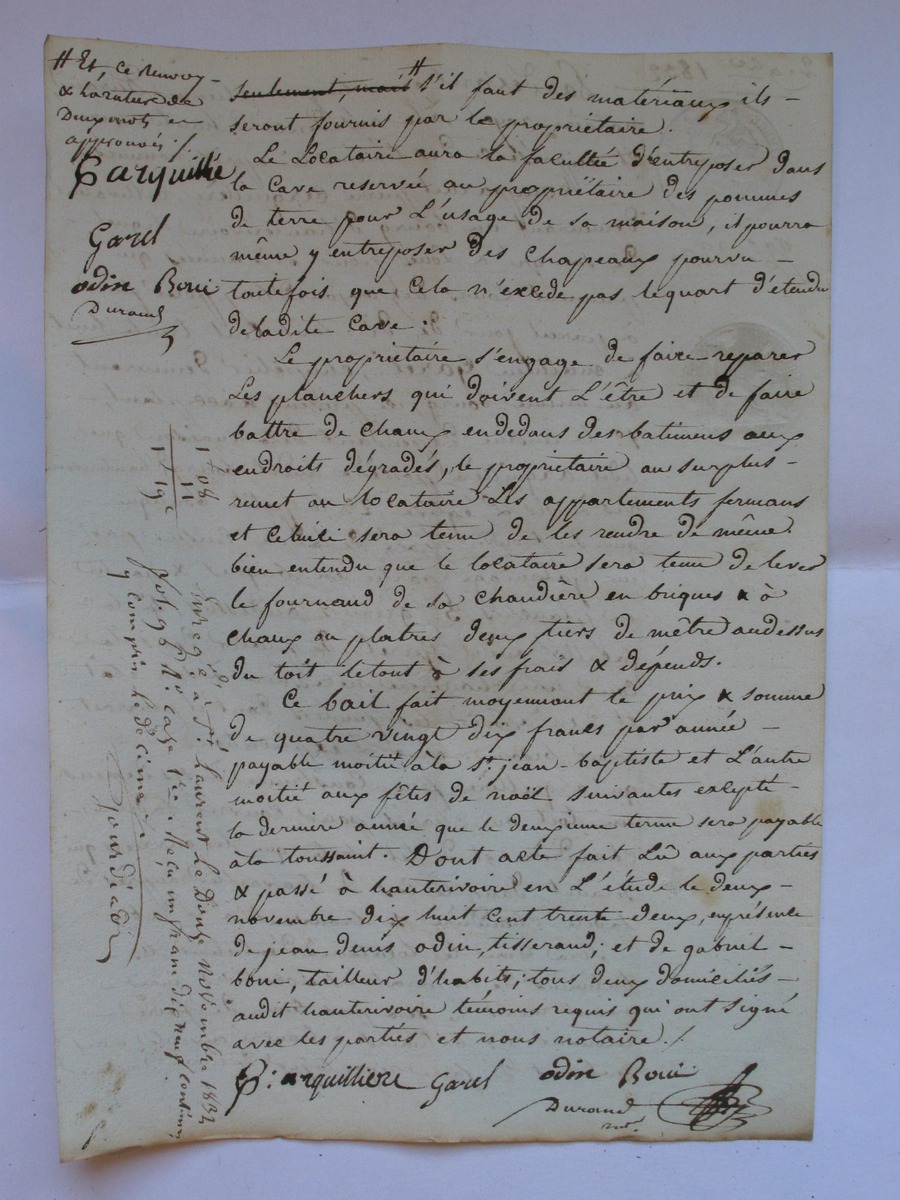 # Et, ce renvoy
& la rature de
Deux mots en
approuvés ./.
P arquillie
Garel
odin Boni
Durand
seulement, mais # s'il faut des matériaux ils
seront fournis par le propriétaire.
Le Locataire aura la facultée d'entreposer dans
la cave reservée au propriétaire des pommes
de terre pour L'usage de sa maison, il pourra
même y entreposer des chapeaux pourvu
toutefois que cela n'excede pas le quart d'étendu
de ladite cave.
Le propriétaire s'engage de faire reparer
Les planchers qui doivent L'être et de faire
battre de chaux endedans des batimens aux
endroits dégradés, le propriétaire au surplus
remet au locataire Les appartements fermans
et celuici sera tenu de les rendre de même.
bien entendu que le locataire sera tenu de lever
le fournaud de sa chaudière en briques & à
chaux ou platres deux tiers de mêtre audessus
du toit letout à ses frais & dépends.
Ce bail fait moyennant le prix & somme
de quatre vingt dix francs par année
payable moitié à la St jean-baptiste et L'autre
moitié aux fêtes de noël suivantes excepté
la derniere année que le deuxieme terme sera payable
à la toussaint. Dont acte fait Lû aux parties
& passé à hauterivoire en L'étude le deux
novembre dix huit cent trente deux, en présence
de jean denis odin, tisserand; et de gabriel
boni, tailleur d'habits; tous deux domiciliés
audit hauterivoire témoins requis qui ont signé
avec les parties et nous notaire./.
P: arquilliere Garel odin Boni
Durand
not.
1f 08
11
1f 19c
Enregé à St Laurent le Douze novembre 1832
fol. 96 Ro case 1re Reçu un franc dix neuf centimes
y compris le dé cime ./.